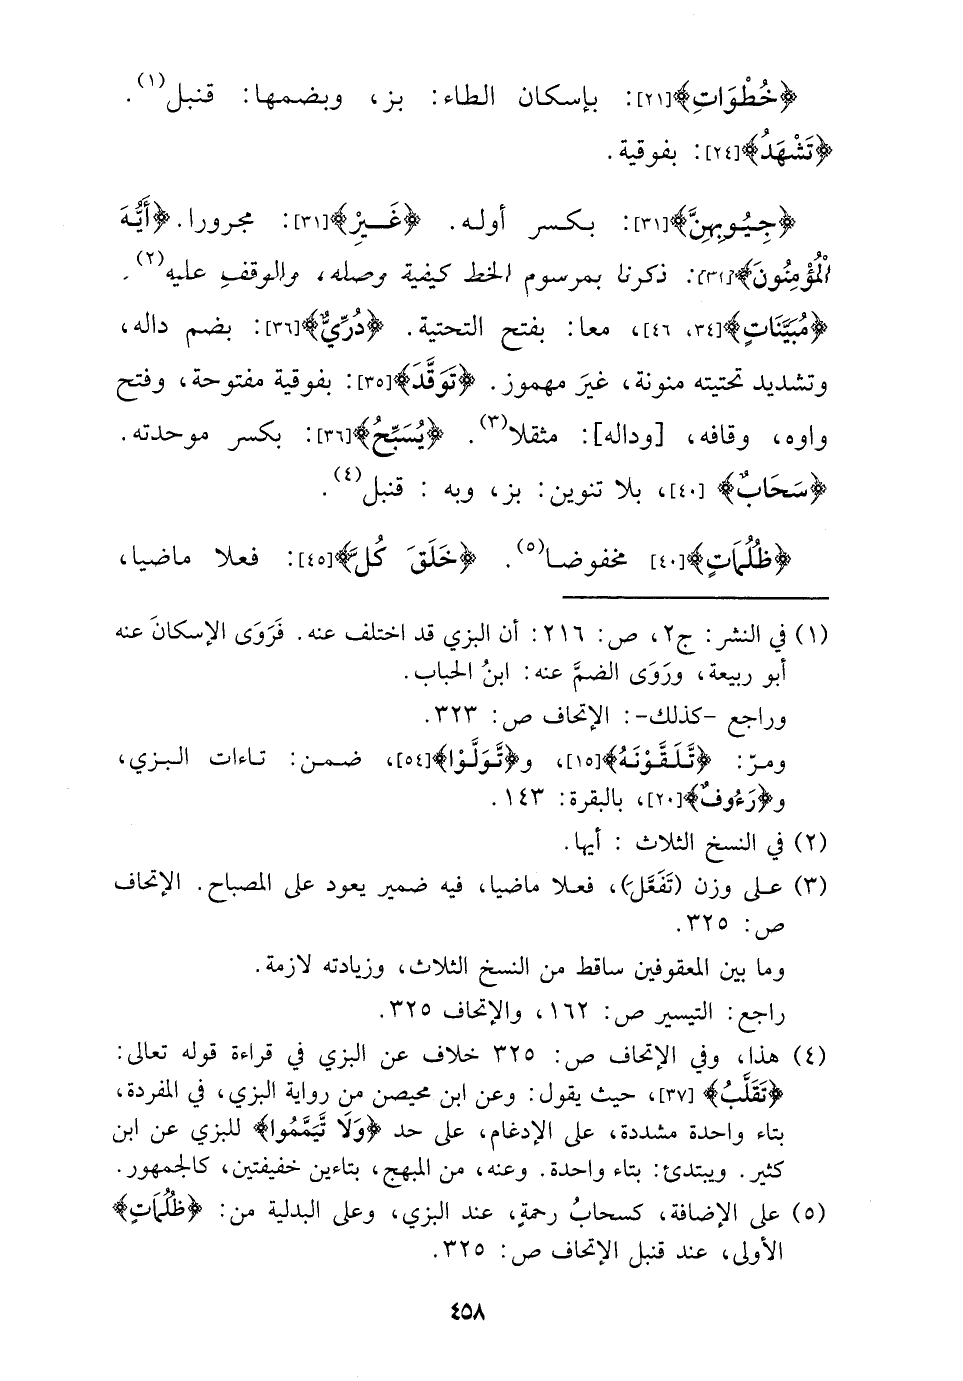 ﴿خُطْوَاتِ﴾[٢١]: بإسكان الطاء: بز، وبضمها: قنبل(١).
﴿تَشْهَدُ﴾[٢٤]: بفوقية.
﴿جِيُوبِهِنَّ﴾[٣١]: بكسر أوله. ﴿غَيْرِ﴾[٣١]: مجرورا. ﴿أَيُّهَ
الْمُؤْمِنُونَ﴾[٣١]: ذكرنا بمرسوم الخط كيفية وصله، والوقف عليه(٢).
﴿مُبَيَّنَاتٍ﴾[٣٤، ٤٦]، معا: بفتح التحتية. ﴿دُرِّيٌّ﴾[٣٦]: بضم داله،
وتشديد تحتيته منونة، غيرَ مهموز. ﴿تَوَقَّدَ﴾[٣٥]: بفوقية مفتوحة، وفتح
واوه، وقافه، [وداله]: مثقلا(٣). ﴿يُسَبِّحُ﴾[٣٦]: بكسر موحدته.
﴿سَحَابٌ﴾ [٤٠]، بلا تنوين: بز، وبه : قنبل(٤).
﴿ظُلُمَاتٍ﴾[٤٠] مخفوضا(٥). ﴿خَلَقَ كُلَّ﴾[٤٥]: فعلا ماضيا،
(١) في النشر: ج٢، ص: ٢١٦: أن البزي قد اختلف عنه. فَرَوَى الإسكانَ عنه
أبو ربيعة، ورَوَى الضمَّ عنه: ابنُ الحباب.
وراجع -كذلك-: الإتحاف ص: ٣٢٣.
ومرّ: ﴿تَّلَقَّوْنَهُ﴾[١٥]، و﴿تَّوَلَّوْا﴾[٥٤]، ضمن: تاءات البزي،
و﴿رَءُوفٌ﴾[٢٠]، بالبقرة: ١٤٣.
(٢) في النسخ الثلاث : أيها.
(٣) على وزن (تَفَعَّلَ)، فعلا ماضيا، فيه ضمير يعود على المصباح. الإتحاف
ص: ٣٢٥.
وما بين المعقوفين ساقط من النسخ الثلاث، وزيادته لازمة.
راجع: التيسير ص: ١٦٢، والإتحاف ٣٢٥.
(٤) هذا، وفي الإتحاف ص: ٣٢٥ خلاف عن البزي في قراءة قوله تعالى:
﴿تَقَلَّبُ﴾ [٣٧]، حيث يقول: وعن ابن محيصن من رواية البزي، في المفردة،
بتاء واحدة مشددة، على الإدغام، على حد ﴿وَلَا تَّيَمَّمُوا﴾ للبزي عن ابن
كثير. ويبتدئ: بتاء واحدة. وعنه، من المبهج، بتاءين خفيفتين، كالجمهور.
(٥) على الإضافة، كسحابُ رحمةٍ، عند البزي، وعلى البدلية من: ﴿ظُلُمَاتٍ﴾
الأولى، عند قنبل الإتحاف ص: ٣٢٥.
٤٥٨